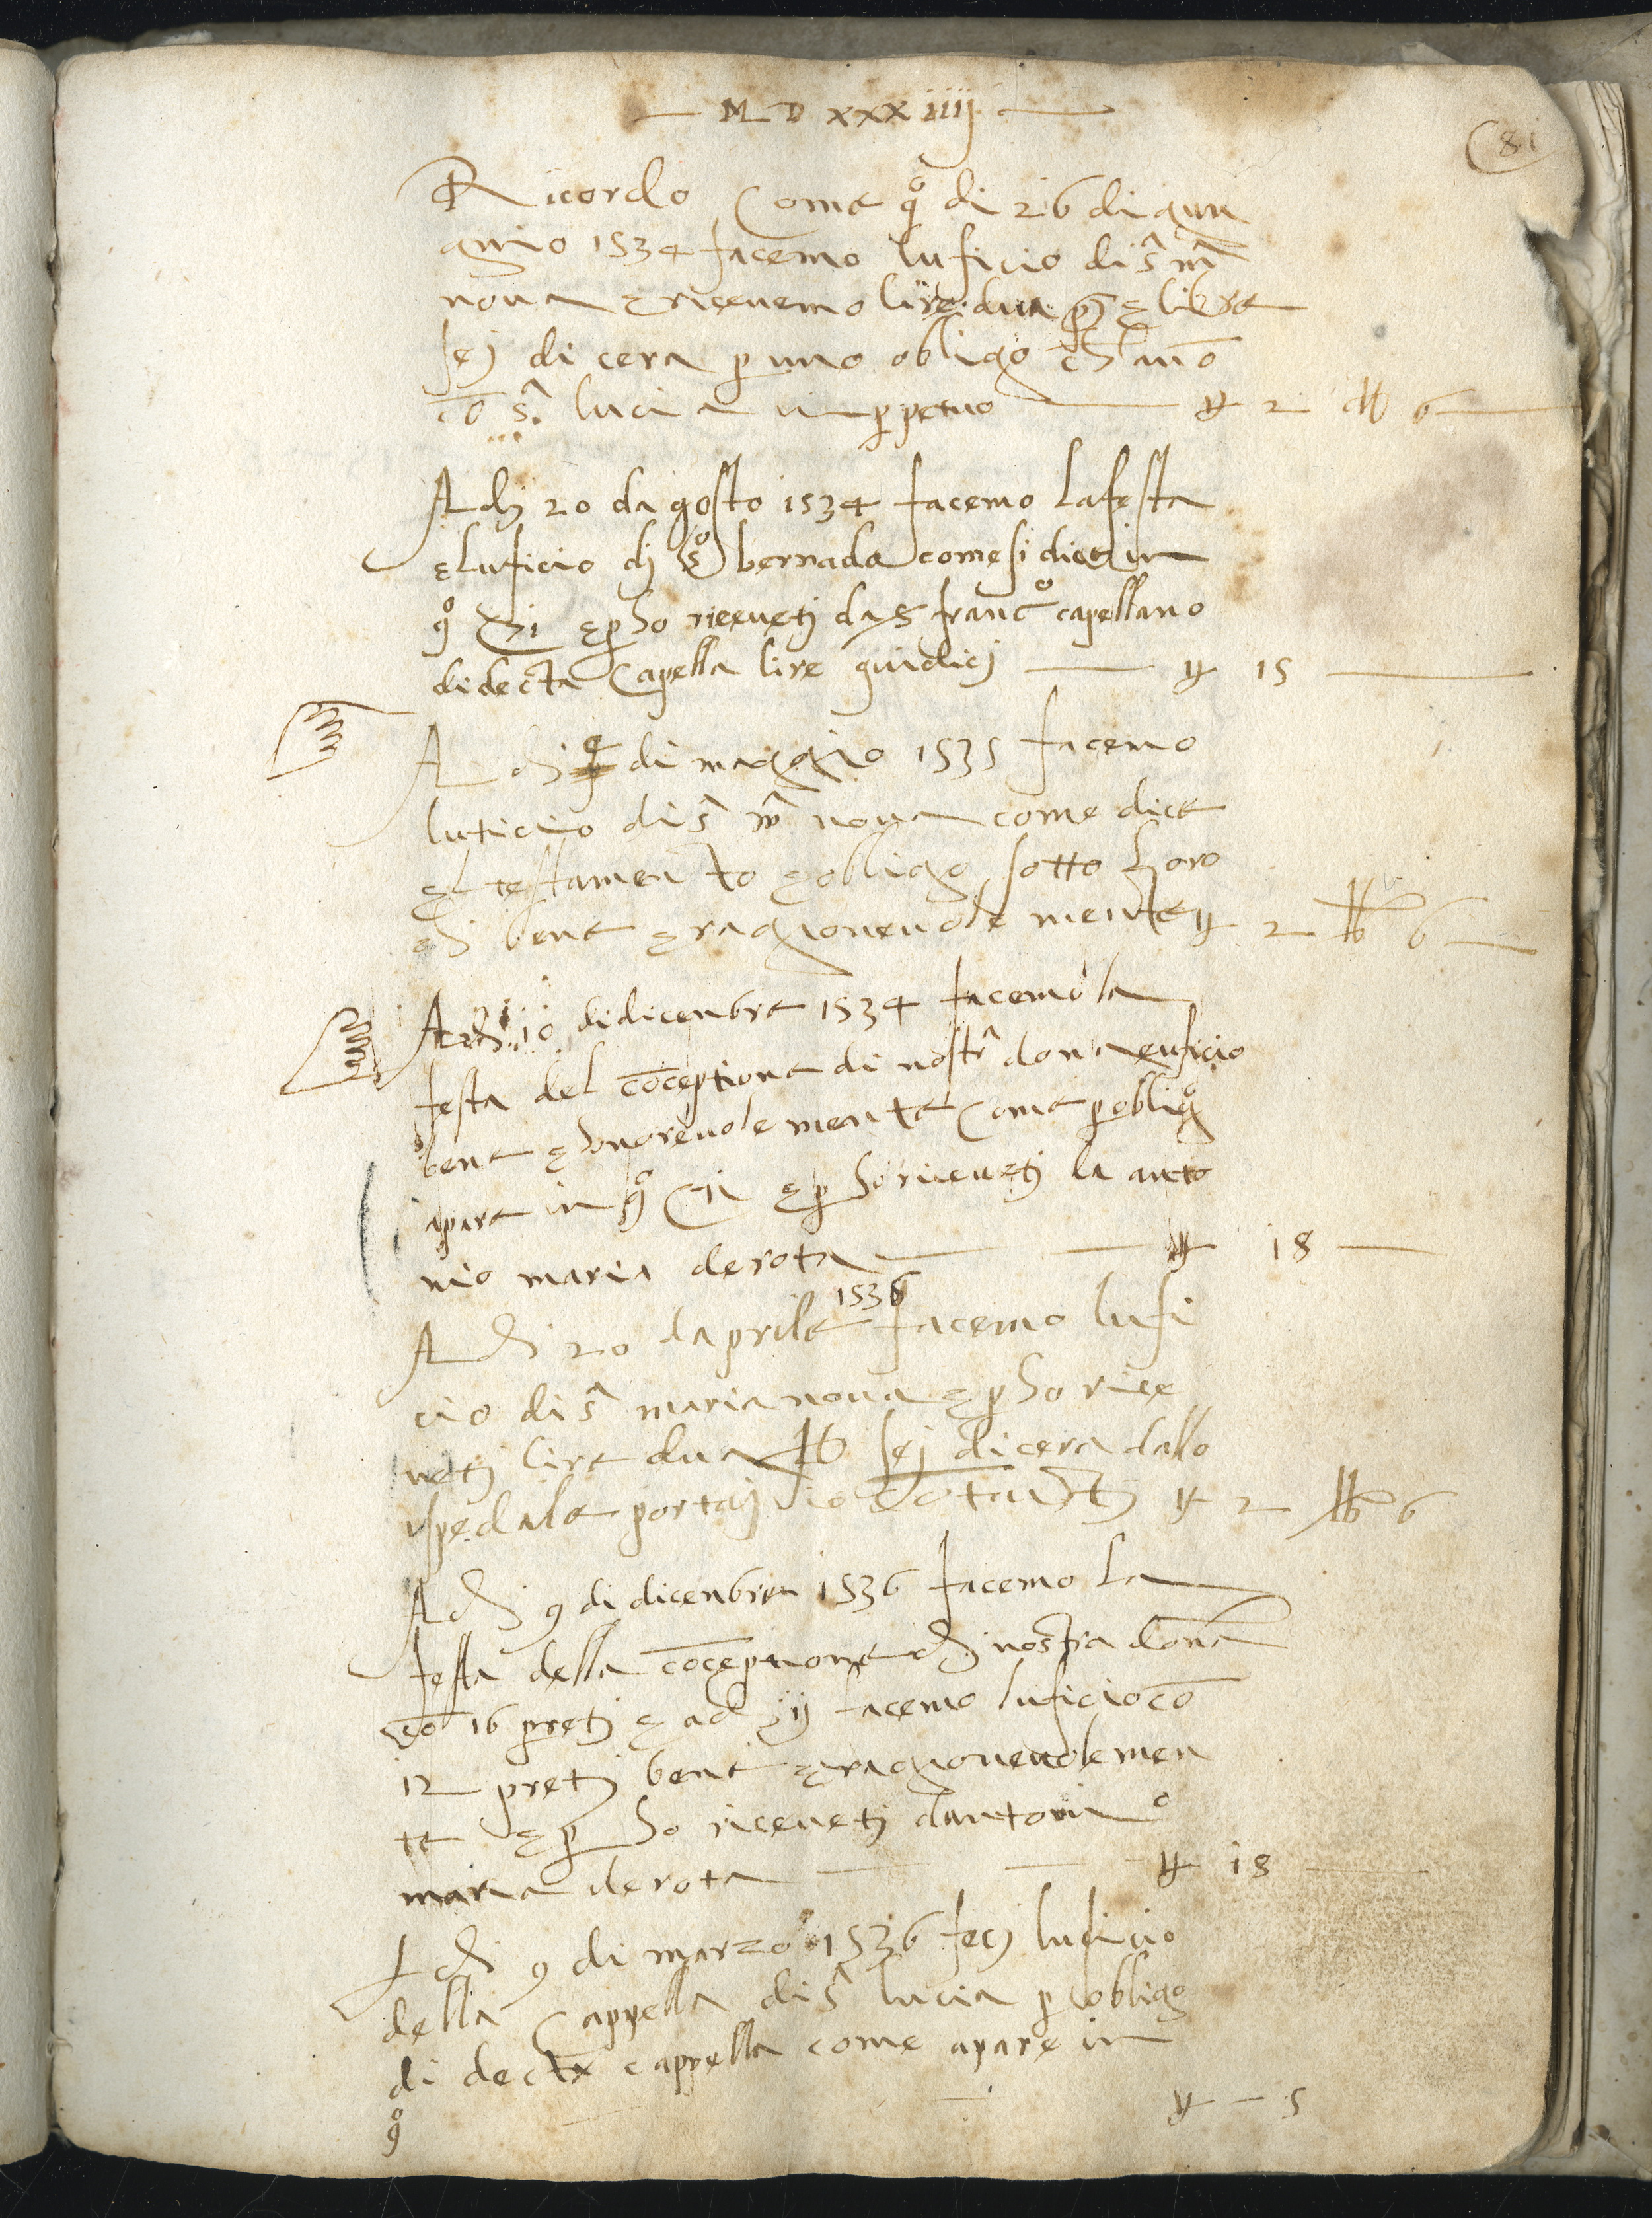 M D xxx iiij
81
Ricordo come qº di 26 di giun
gnio 1534 facemo luficio di sª mª
nova e ricevemo lire dua e libre
sej di cera p uno obligo
cō sª lucia in ppetuo 2 6
A dj 20 dagosto 1534 facemo la festa
e luficio dj sº bernardo come si dice in
qº e p ho ricevetj da francº capellano
di decta capella lire quidicj 15
A di di maggio 1535 facemo
luficio di sª mª nova come dice
el testamento e obligo sotto
bene e ragionevole mente 2 6
A di 10 di dicenbre 1534 facemo la
festa del cōceptione di nostrª dona e uficio
bene e honorevole mente come p obligº
apare in qº e p ho ricevetj da anto
nio maria de rota 18
A di 20 daprile 1536 facemo lufi
cio di sª maria nova e p ho rice
vetj lire dua sej di cera dallo
spedale portaj io 2 6
A di 9 di dicenbre 1536 facemo la
festa della cōceptione di nostra dona
cō 16 pretj e ad facemo luficio cō
12 pretj bene e ragionevole men
te e p ho ricevetj dantonio
maria de rota 18
A di 9 di marzo 1536 fecj luficio
della cappella di sª lucia p obligo
di decta cappella come apare in
qº 5